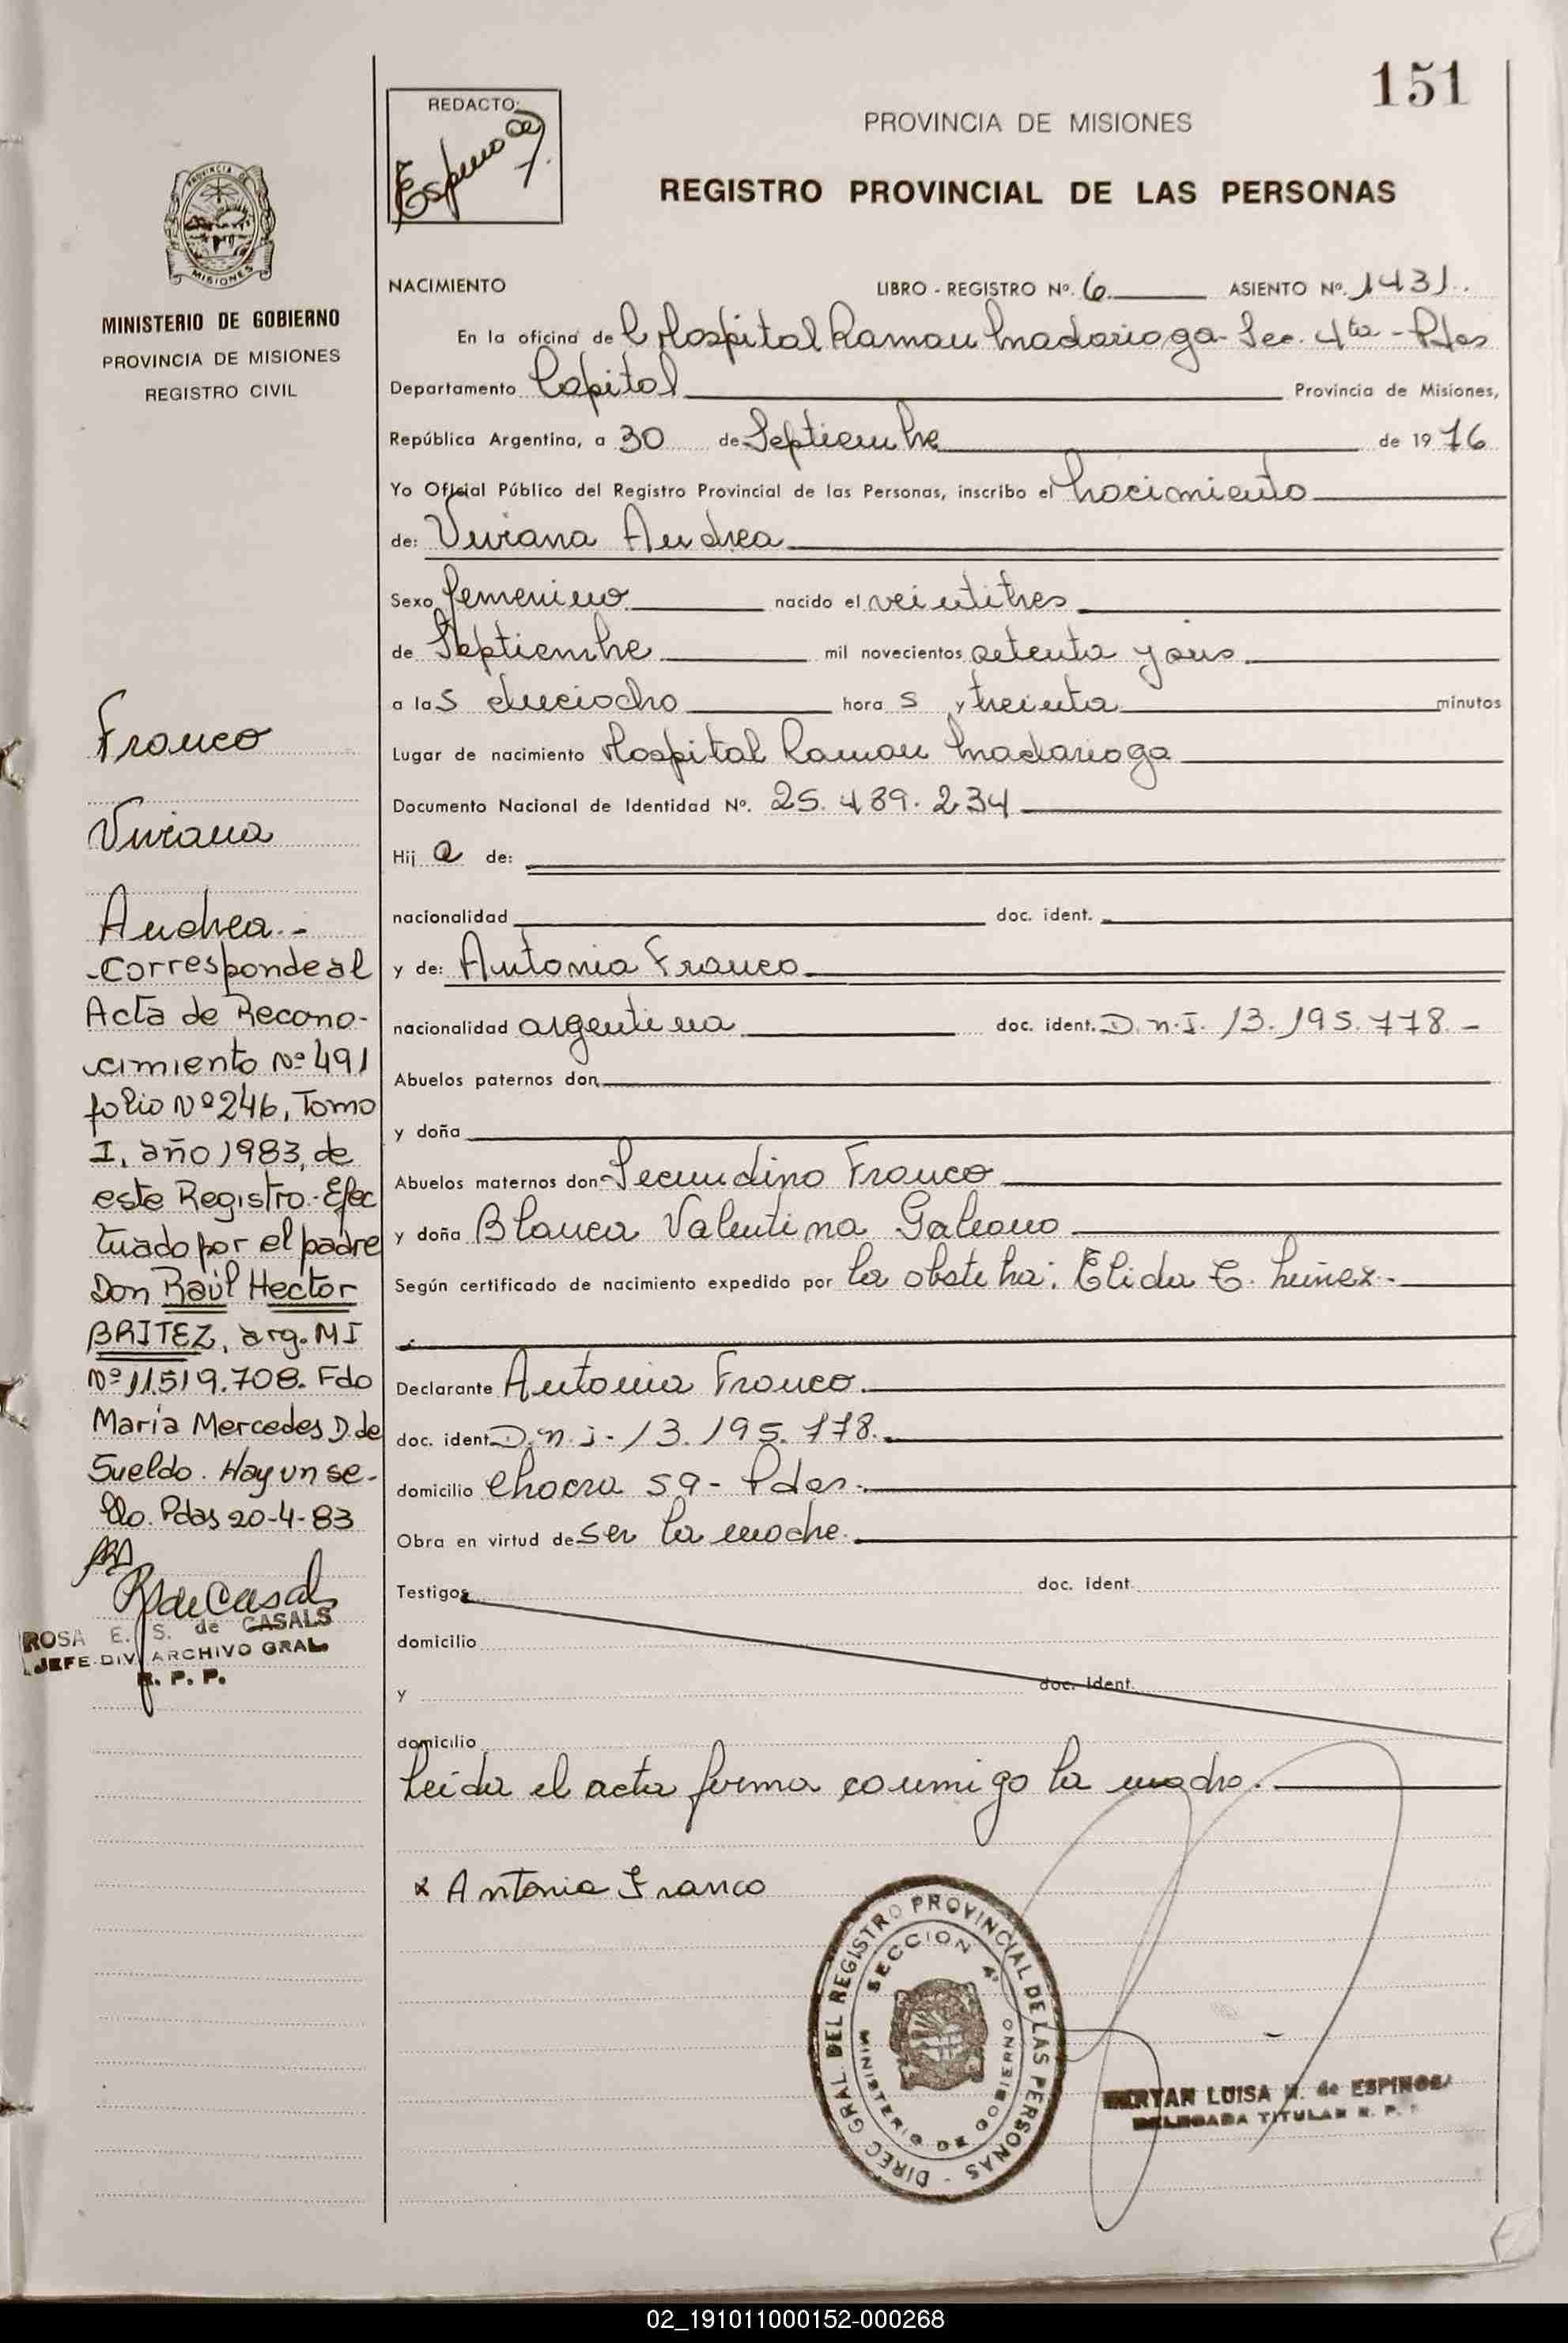 151
REDACTO:
Espinoza
PROVINCIA DE MISIONES
REGISTRO PROVINCIAL DE LAS PERSONAS
PROVINCIA DE
MISIONES
MINISTERIO DE GOBIERNO
PROVINCIA DE MISIONES
REGISTRO CIVIL
NACIMIENTO LIBRO - REGISTRO Nº. 6 ASIENTO Nº. 1431.
En la oficina de Hospital Ramon Madariaga - Sec. 4ta - Pdas
Departamento Capital Provincia de Misiones,
República Argentina, a 30 de Septiembre de 1976
Yo Oficial Público del Registro Provincial de las Personas, inscribo el nacimiento
de: Viviana Andrea
Sexo femenino nacido el veintitres
de Septiembre mil novecientos setenta y seis
a las dieciocho horas y treinta minutos
Lugar de nacimiento Hospital Ramon Madariaga
Documento Nacional de Identidad Nº. 25.489.234
Hija de:
nacionalidad doc. ident.
y de: Antonia Franco
nacionalidad argentina doc. ident. D.N.I. 13.195.778.-
Abuelos paternos don
y doña
Abuelos maternos don Secundino Franco
y doña Blanca Valentina Galeano
Según certificado de nacimiento expedido por la obstetra: Elida C. Nuñez.-
Declarante Antonia Franco.
doc. ident. D.N.I. 13.195.778.
domicilio Chacra 59 - Pdas.
Obra en virtud de ser la madre.
Testigos doc. ident.
domicilio
y doc. ident.
domicilio
Leida el acta firma conmigo la madre.
x Antonia Franco
DIREC GRAL. DEL REGISTRO PROVINCIAL DE LAS PERSONAS -
SECCION 4ª
MINISTERIO DE GOBIERNO
MIRYAN LUISA N. de ESPINOSA
DELEGADA TITULAR R. P. P.
Franco
Viviana
Andrea.-
-Corresponde al
Acta de Recono-
cimiento Nº 491
folio Nº 246, Tomo
I, año 1983, de
este Registro.- Efec
tuado por el padre
Don Raúl Hector
BRITEZ, arg. MI
Nº 11.519.708. Fdo
Maria Mercedes D. de
Sueldo. Hay un se-
llo. Pdas 20-4-83
R de Casals
ROSA E. S. de CASALS
JEFE DIV. ARCHIVO GRAL.
R. P. P.
02_191011000152-000268